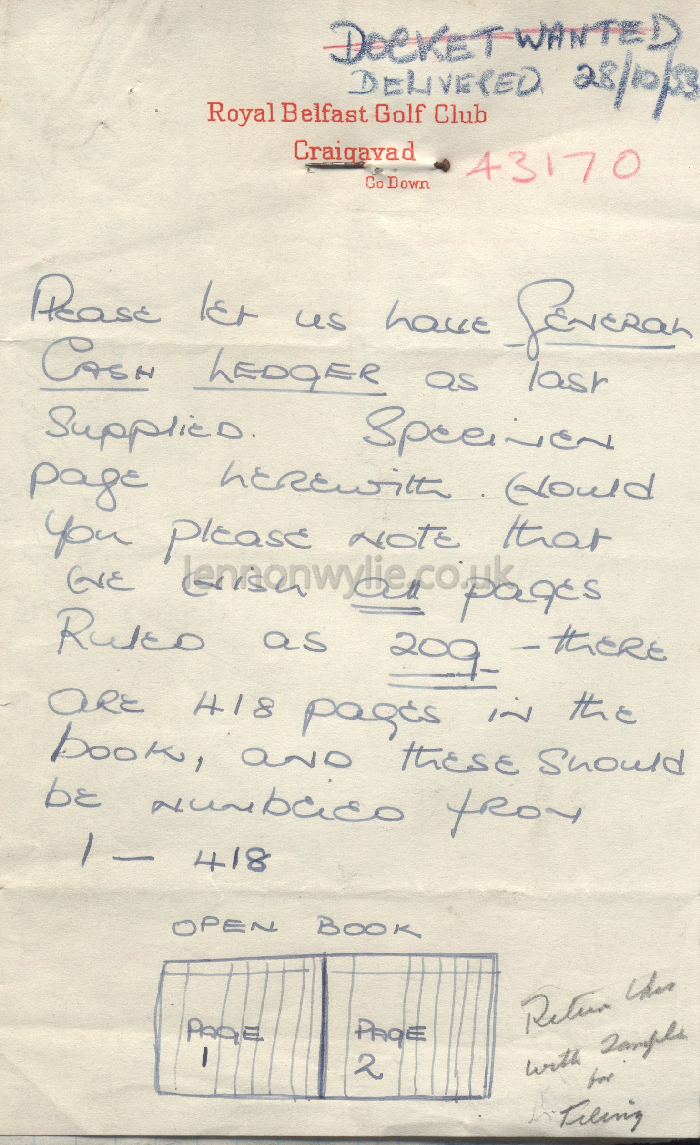 DOCKET WANTED
DELIVERED 28/10/53
Royal Belfast Golf Club
Craigavad
Co Down
43170
Please let us have General
Cash Ledger as last
supplied. Specimen
page herewith. Would
you please note that
we wish all pages
Ruled as 209 - there
are 418 pages in the
book, and these should
be numbered from
1 - 418
lennonwylie.co.uk
OPEN BOOK
PAGE
1
PAGE
2
Return this
with sample
for
Filing